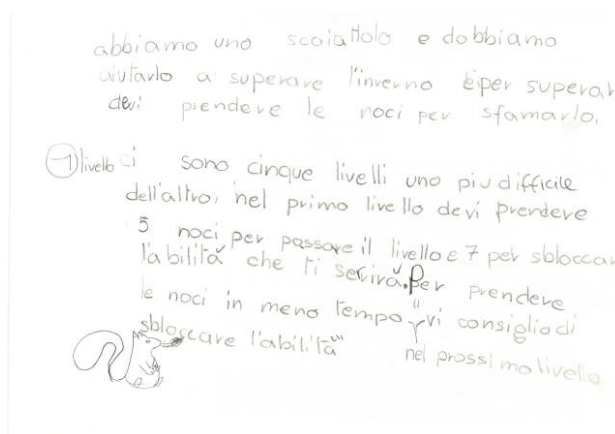 abbiamo uno scoiattolo e dobbiamo
aiutarlo a superare l'inverno e per superar
devi prendere le noci per sfamarlo.
1) livello ci sono cinque livelli uno piu difficile
dell'altro, nel primo livello devi prendere
5 noci per passare il livello e 7 per sbloccar
l'abilità che ti servirà. Per prendere
le noci in meno tempo vi consiglio di
sbloccare l'abilità nel prossimo livello